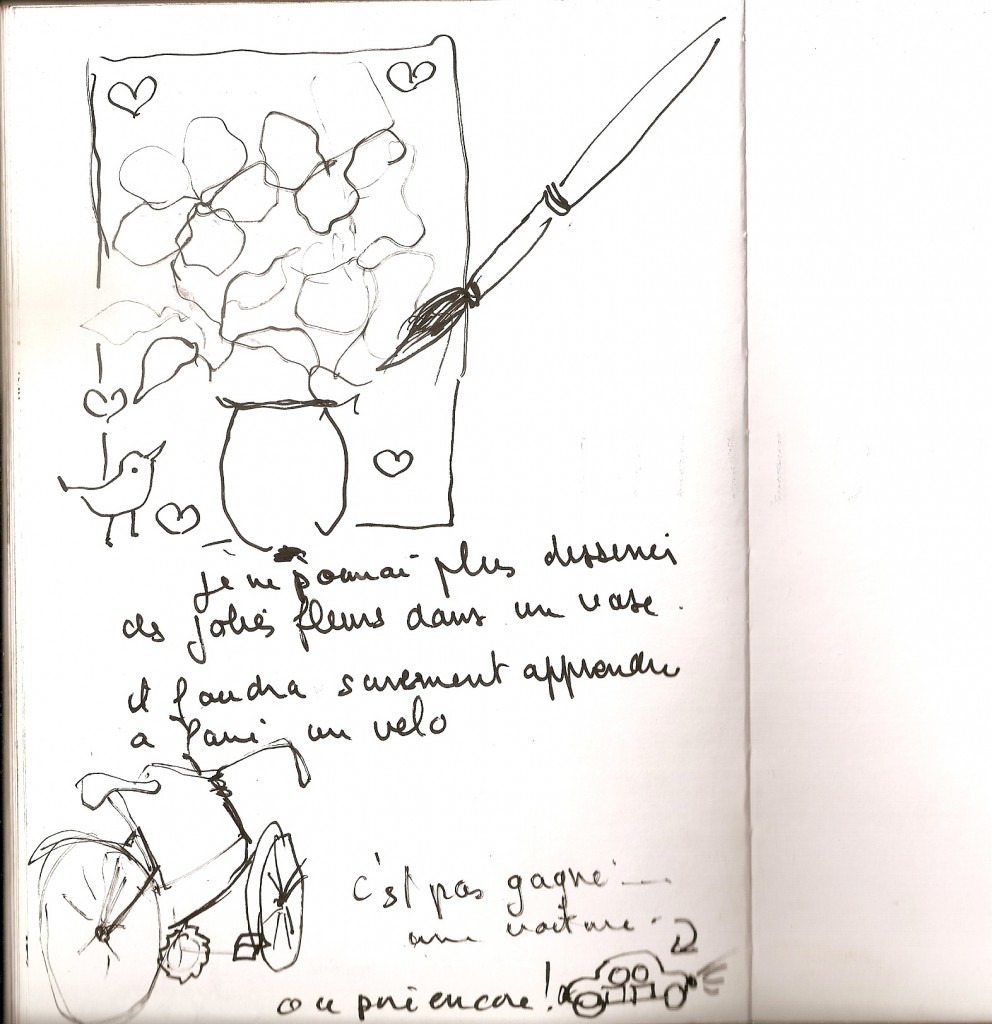 je ne pourrai plus dessiner
des jolies fleurs dans un vase.
il faudra surement apprendre
a faire un velo
c'est pas gagné
une voiture
ou pire encore!